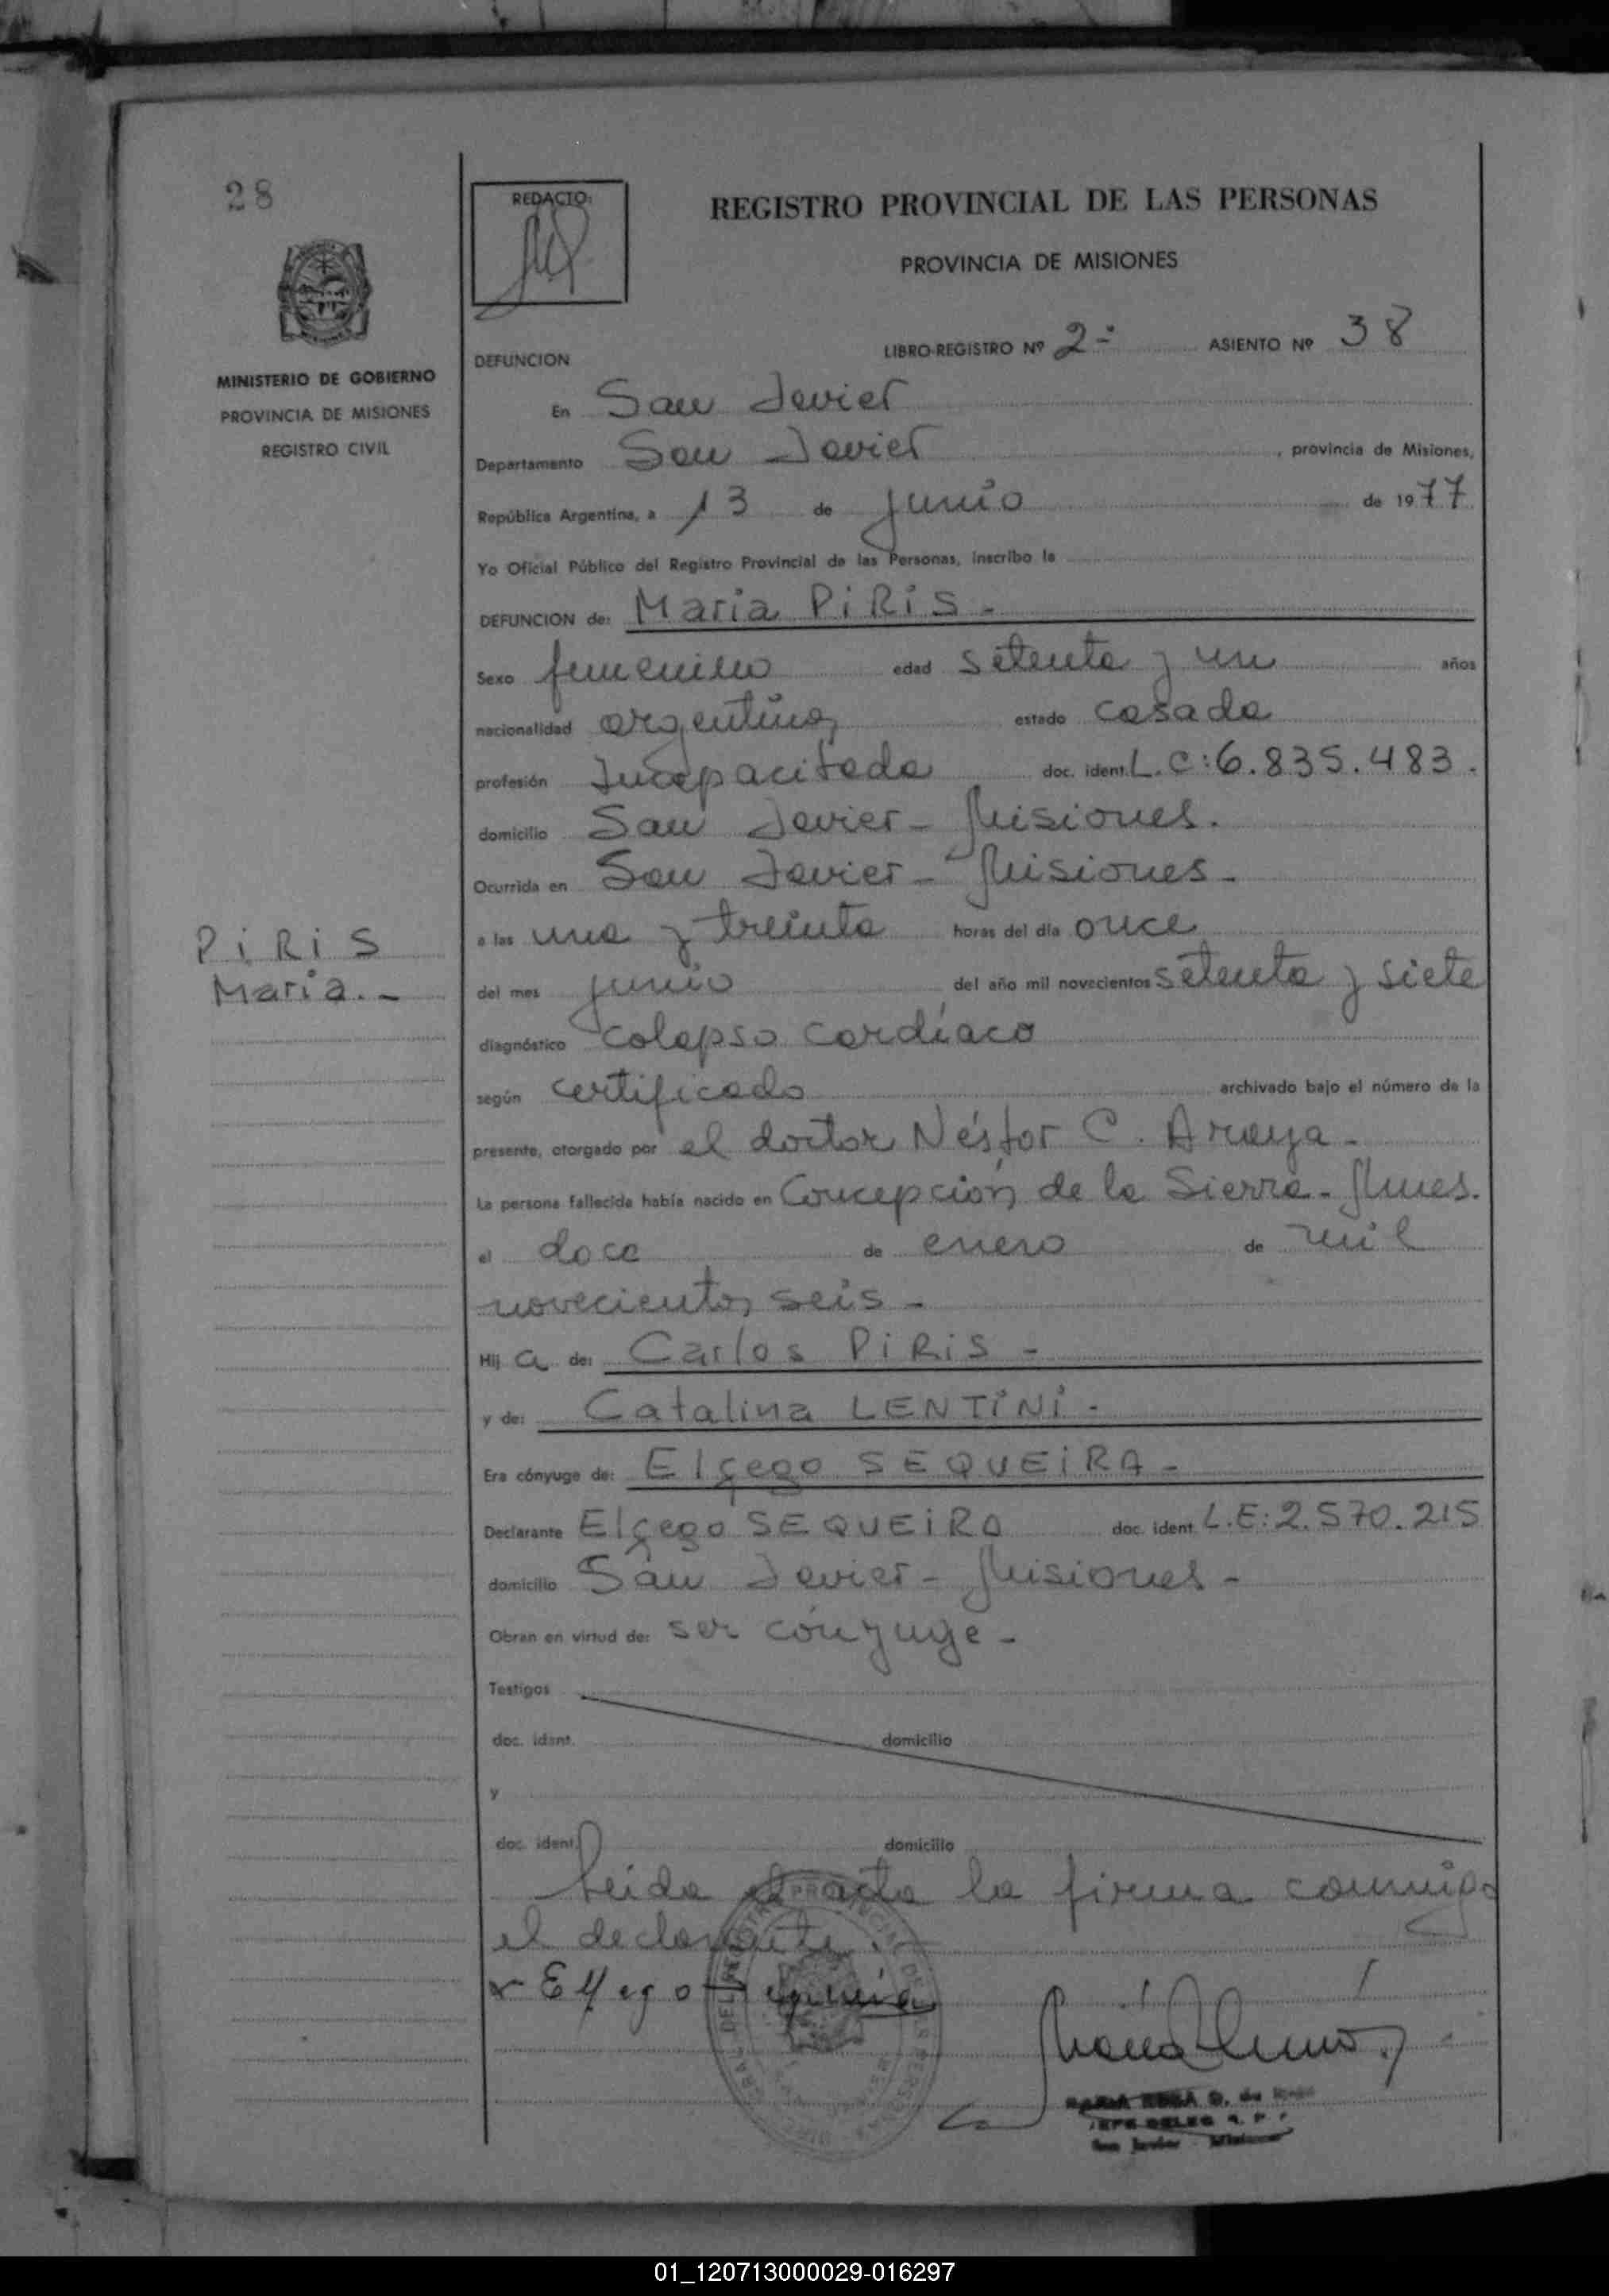 28
REDACTO:
REGISTRO PROVINCIAL DE LAS PERSONAS
PROVINCIA DE MISIONES
MINISTERIO DE GOBIERNO
PROVINCIA DE MISIONES
REGISTRO CIVIL
DEFUNCION
LIBRO-REGISTRO Nº 2- ASIENTO Nº 38
En San Javier
Departamento San Javier, provincia de Misiones,
República Argentina, a 13 de junio de 1977
Yo Oficial Público del Registro Provincial de las Personas, inscribo la
DEFUNCION de: Maria PIRIS -
Sexo femenino edad setenta y un años
nacionalidad argentina estado casada
profesión Incapacitada doc. ident. L.C:6.835.483.
domicilio San Javier - Misiones.
Ocurrida en San Javier - Misiones -
a las una y treinta horas del día once
PIRIS
Maria. -
del mes junio del año mil novecientos setenta y siete
diagnóstico colapso cardíaco
según certificado archivado bajo el número de la
presente, otorgado por el doctor Néstor C. Araya -
La persona fallecida había nacido en Concepción de la Sierra - Mnes.
el doce de enero de mil
novecientos seis -
Hij a de: Carlos PIRIS -
y de: Catalina LENTINI -
Era cónyuge de: Elçego SEQUEIRA -
Declarante Elçego SEQUEIRA doc. ident. L.E:2.570.215
domicilio San Javier - Misiones -
Obran en virtud de: ser cónyuge -
Testigos
doc. ident. domicilio
y
doc. ident. domicilio
Leida el acta la firma conmigo
el declarante.-
MARIA ROSA D. de
JEFE DELEG. R. P.
San Javier - Misiones
01_120713000029-016297